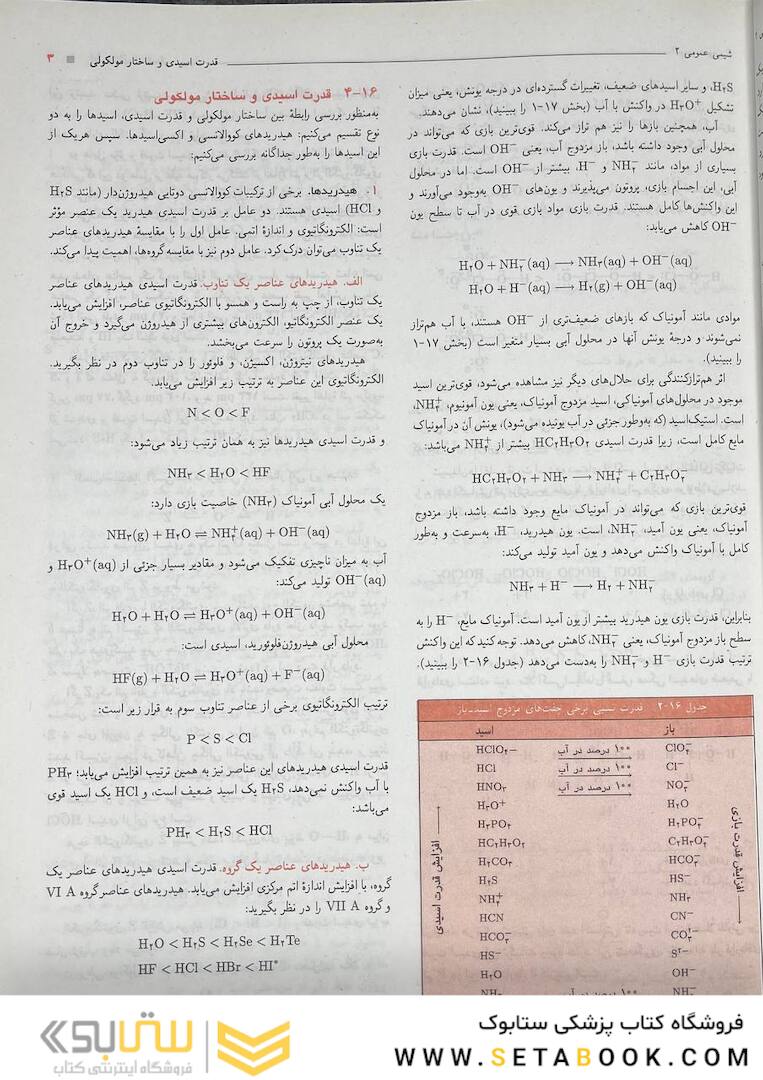 شیمی عمومی ۲
قدرت اسیدی و ساختار مولکولی ۳
H۲S، و سایر اسیدهای ضعیف، تغییرات گسترده‌ای در درجه یونش، یعنی میزان
تشکیل H۳O⁺ در واکنش با آب (بخش ۱۷-۱ را ببینید)، نشان می‌دهند.
آب، همچنین بازها را نیز هم تراز می‌کند. قوی‌ترین بازی که می‌تواند در
محلول آبی وجود داشته باشد، باز مزدوج آب، یعنی OH⁻ است. قدرت بازی
بسیاری از مواد، مانند NH₂⁻ و H⁻، بیشتر از OH⁻ است. اما در محلول
آبی، این اجسام بازی، پروتون می‌پذیرند و یون‌های OH⁻ به‌وجود می‌آورند و
این واکنش‌ها کامل هستند. قدرت بازی مواد بازی قوی در آب تا سطح یون
OH⁻ کاهش می‌یابد:
H۲O + NH۲⁻(aq) ⟶ NH۳(aq) + OH⁻(aq)
H۲O + H⁻(aq) ⟶ H۲(g) + OH⁻(aq)
موادی مانند آمونیاک که بازهای ضعیف‌تری از OH⁻ هستند، با آب هم‌تراز
نمی‌شوند و درجهٔ یونش آنها در محلول آبی بسیار متغیر است (بخش ۱۷-۱
را ببینید).
اثر هم‌ترازکنندگی برای حلال‌های دیگر نیز مشاهده می‌شود، قوی‌ترین اسید
موجود در محلول‌های آمونیاکی، اسید مزدوج آمونیاک، یعنی یون آمونیوم، NH۴⁺،
است. استیک‌اسید (که به‌وطور جزئی در آب یونیده می‌شود)، یونش آن در آمونیاک
مایع کامل است، زیرا قدرت اسیدی HC۲H۳O۲ بیشتر از NH۴⁺ می‌باشد:
HC۲H۳O۲ + NH۳ ⟶ NH۴⁺ + C۲H۳O۲⁻
قوی‌ترین بازی که می‌تواند در آمونیاک مایع وجود داشته باشد، باز مزدوج
آمونیاک، یعنی یون آمید، NH۲⁻، است. یون هیدرید، H⁻، به‌سرعت و به‌طور
کامل با آمونیاک واکنش می‌دهد و یون آمید تولید می‌کند:
NH۳ + H⁻ ⟶ H۲ + NH۲⁻
بنابراین، قدرت بازی یون هیدرید بیشتر از یون آمید است. آمونیاک مایع، H⁻ را به
سطح باز مزدوج آمونیاک، یعنی NH۲⁻، کاهش می‌دهد. توجه کنید که این واکنش
ترتیب قدرت بازی H⁻ و NH۲⁻ را به‌دست می‌دهد (جدول ۱۶-۲ را ببینید).
جدول ۱۶-۲ قدرت نسبی برخی جفت‌های مزدوج اسید-باز
اسید باز
HClO۴- ۱۰۰ درصد در آب ClO۴⁻
HCl ۱۰۰ درصد در آب Cl⁻
HNO۳ ۱۰۰ درصد در آب NO۳⁻
H۳O⁺ H۲O
H۳PO۴ H۲PO۴⁻
HC۲H۳O۲ C۲H۳O۲⁻
H۲CO۳ HCO۳⁻
H۲S HS⁻
NH۴⁺ NH۳
HCN CN⁻
HCO۳⁻ CO۳²⁻
HS⁻ S²⁻
H۲O OH⁻
NH۳ ۱۰۰ درصد در آب NH۲⁻
افزایش قدرت اسیدی
افزایش قدرت بازی
۱۶-۴ قدرت اسیدی و ساختار مولکولی
به‌منظور بررسی رابطهٔ بین ساختار مولکولی و قدرت اسیدی، اسیدها را به دو
نوع تقسیم می‌کنیم: هیدریدهای کووالانسی و اکسی‌اسیدها. سپس هریک از
این اسیدها را به‌طور جداگانه بررسی می‌کنیم:
۱. هیدریدها. برخی از ترکیبات کووالانسی دوتایی هیدروژن‌دار (مانند H۲S
و HCl) اسیدی هستند. دو عامل بر قدرت اسیدی هیدرید یک عنصر مؤثر
است: الکترونگاتیوی و اندازهٔ اتمی. عامل اول را با مقایسهٔ هیدریدهای عناصر
یک تناوب می‌توان درک کرد. عامل دوم نیز با مقایسه گروه‌ها، اهمیت پیدا می‌کند.
الف. هیدریدهای عناصر یک تناوب. قدرت اسیدی هیدریدهای عناصر
یک تناوب، از چپ به راست و همسو با الکترونگاتیوی عناصر، افزایش می‌یابد.
یک عنصر الکترونگاتیو، الکترون‌های بیشتری از هیدروژن می‌گیرد و خروج آن
به‌صورت یک پروتون را سرعت می‌بخشد.
هیدریدهای نیتروژن، اکسیژن، و فلوئور را در تناوب دوم در نظر بگیرید.
الکترونگاتیوی این عناصر به ترتیب زیر افزایش می‌یابد.
N < O < F
و قدرت اسیدی هیدریدها نیز به همان ترتیب زیاد می‌شود:
NH۳ < H۲O < HF
یک محلول آبی آمونیاک (NH۳) خاصیت بازی دارد:
NH۳(g) + H۲O ⇌ NH۴⁺(aq) + OH⁻(aq)
آب به میزان ناچیزی تفکیک می‌شود و مقادیر بسیار جزئی از H۳O⁺(aq) و
OH⁻(aq) تولید می‌کند:
H۲O + H۲O ⇌ H۳O⁺(aq) + OH⁻(aq)
محلول آبی هیدروژن‌فلوئورید، اسیدی است:
HF(g) + H۲O ⇌ H۳O⁺(aq) + F⁻(aq)
ترتیب الکترونگاتیوی برخی از عناصر تناوب سوم به قرار زیر است:
P < S < Cl
قدرت اسیدی هیدریدهای این عناصر نیز به همین ترتیب افزایش می‌یابد؛ PH۳
با آب واکنش نمی‌دهد، H۲S یک اسید ضعیف است، و HCl یک اسید قوی
می‌باشد:
PH۳ < H۲S < HCl
ب. هیدریدهای عناصر یک گروه. قدرت اسیدی هیدریدهای عناصر یک
گروه، با افزایش اندازهٔ اتم مرکزی افزایش می‌یابد. هیدریدهای عناصر گروه VI A
و گروه VII A را در نظر بگیرید:
H۲O < H۲S < H۲Se < H۲Te
HF < HCl < HBr < HI*
فروشگاه کتاب پزشکی ستابوک
WWW.SETABOOK.COM
ستابوک
فروشگاه اینترنتی کتاب